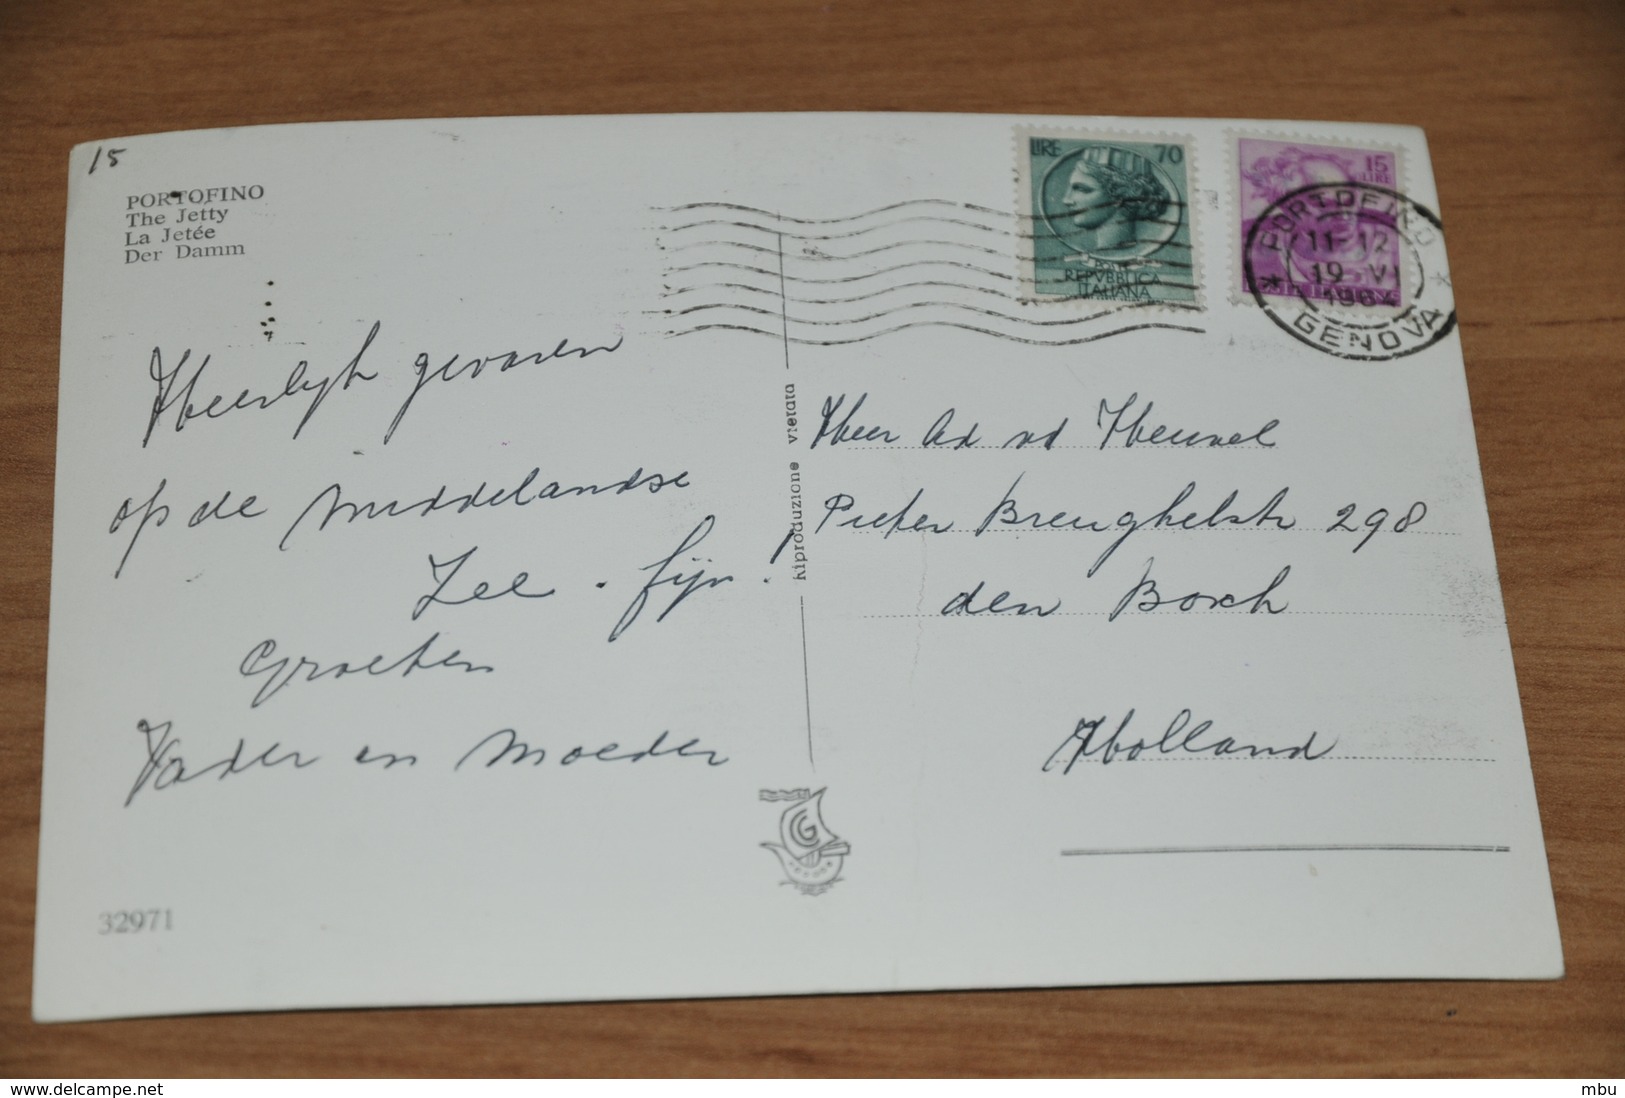 15
PORTOFINO
The Jetty
La Jetée
Der Damm
Heerlijk gevaren
op de middelandse
Zee. fijn!
Groeten
Vader en Moeder
32971
Riproduzione vietata
CG
LIRE 70
POSTE
REPVBBLICA
ITALIANA
15
LIRE
PORTOFINO
11-12
19 VI
GENOVA
Heer Ad vd Heuvel
Pieter Breughelstr 298
den Bosch
Holland
mbu
https://www.delcampe.net